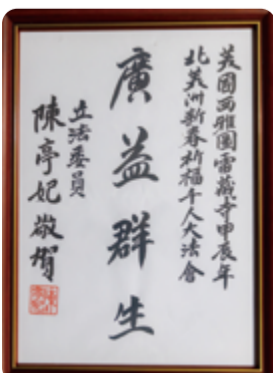 美國西雅圖雷藏寺申辰年
北美洲新春祈福千人大法會
廣益群生
立法委員
陳亭妃敬賀